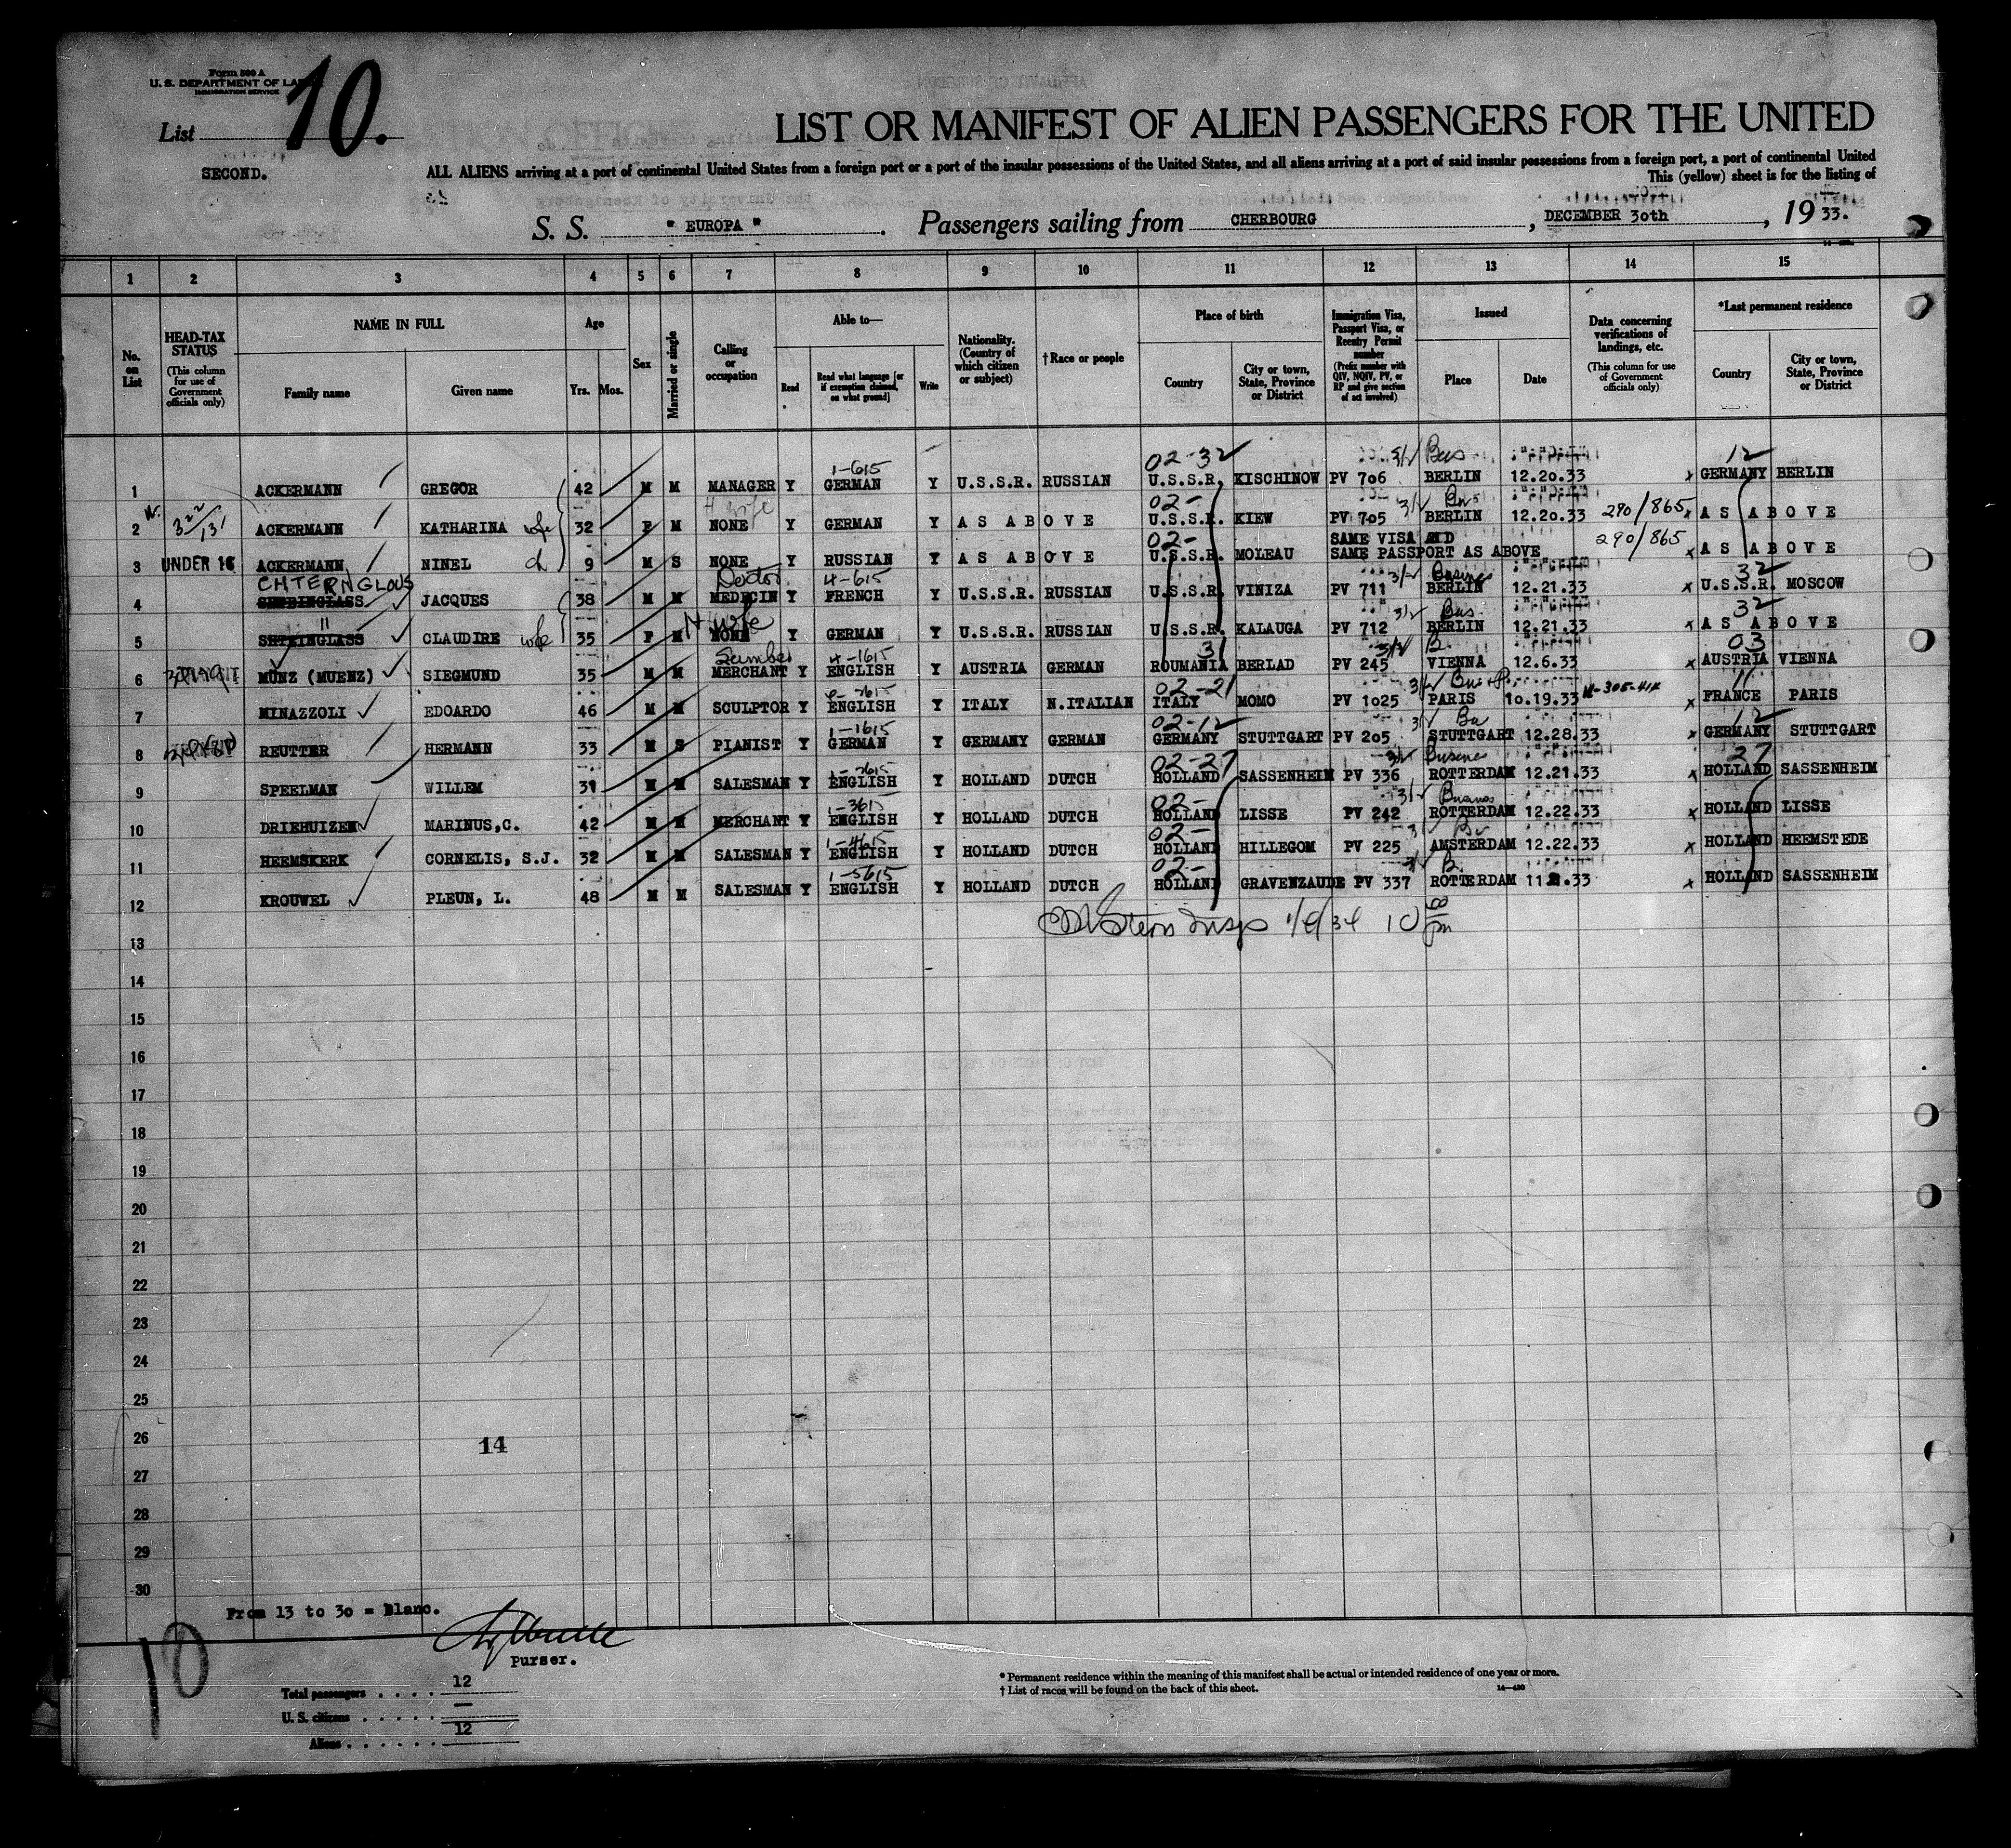 Form 500 A
U. S. DEPARTMENT OF LABOR
IMMIGRATION SERVICE
List 10.
LIST OR MANIFEST OF ALIEN PASSENGERS FOR THE UNITED
SECOND.
ALL ALIENS arriving at a port of continental United States from a foreign port or a port of the insular possessions of the United States, and all aliens arriving at a port of said insular possessions from a foreign port, a port of continental United
This (yellow) sheet is for the listing of
S. S. " EUROPA " . Passengers sailing from CHERBOURG , DECEMBER 30th , 19 33.
1 2 3 4 5 6 7 8 9 10 11 12 13 14 15
No. on List
HEAD-TAX STATUS (This column for use of Government officials only)
NAME IN FULL
Family name Given name
Age
Yrs. Mos.
Sex
Married or single
Calling or occupation
Able to—
Read Read what language [or if exemption claimed, on what ground] Write
Nationality. (Country of which citizen or subject)
†Race or people
Place of birth
Country City or town, State, Province or District
Immigration Visa, Passport Visa, or Reentry Permit number (Prefix number with QIV, NQIV, PV, or RP and give section of act involved)
Issued
Place Date
Data concerning verifications of landings, etc. (This column for use of Government officials only)
*Last permanent residence
Country City or town, State, Province or District
1-615 02-32 3/2 Bus 12
1 ACKERMANN GREGOR 42 M M MANAGER Y GERMAN Y U.S.S.R. RUSSIAN U.S.S.R. KISCHINOW PV 706 BERLIN 12.20.33 x GERMANY BERLIN
H wife 02- 3/2
2 ACKERMANN KATHARINA wife 32 F M NONE Y GERMAN Y AS ABOVE U.S.S.R. KIEW PV 705 BERLIN 12.20.33 290/865 x AS ABOVE
02- SAME VISA AND
3 UNDER 16 ACKERMANN NINEL ch 9 M S NONE Y RUSSIAN Y AS ABOVE U.S.S.R. MOLEAU SAME PASSPORT AS ABOVE 290/865 x AS ABOVE
CHTERNGLOUS Doctor 4-615 3/2 32
4 JACQUES 38 M M MEDECIN Y FRENCH Y U.S.S.R. RUSSIAN U.S.S.R. VINIZA PV 711 BERLIN 12.21.33 x U.S.S.R. MOSCOW
" H wife 3/2 Bus. 32
5 SHTEINGLASS CLAUDIRE wife 35 F M NONE Y GERMAN Y U.S.S.R. RUSSIAN U.S.S.R. KALAUGA PV 712 BERLIN 12.21.33 x AS ABOVE
4-1615 31 3/2 B. 03
6 MUNZ (MUENZ) SIEGMUND 35 M M MERCHANT Y ENGLISH Y AUSTRIA GERMAN ROUMANIA BERLAD PV 245 VIENNA 12.6.33 x AUSTRIA VIENNA
02-21 3/2 11
7 MINAZZOLI EDOARDO 46 M M SCULPTOR Y ENGLISH Y ITALY N.ITALIAN ITALY MOMO PV 1025 PARIS 10.19.33 x FRANCE PARIS
1-1615 02-12 3/2 Bu 12
8 REUTTER HERMANN 33 M S PIANIST Y GERMAN Y GERMANY GERMAN GERMANY STUTTGART PV 205 STUTTGART 12.28.33 x GERMANY STUTTGART
02-27 3/2 27
9 SPEELMAN WILLEM 31 M M SALESMAN Y ENGLISH Y HOLLAND DUTCH HOLLAND SASSENHEIM PV 336 ROTTERDAM 12.21.33 x HOLLAND SASSENHEIM
1-3615 02- 3/2
10 DRIEHUIZEN MARINUS,C. 42 M M MERCHANT Y ENGLISH Y HOLLAND DUTCH HOLLAND LISSE PV 242 ROTTERDAM 12.22.33 x HOLLAND LISSE
1-4615 02- 3/2
11 HEEMSKERK CORNELIS, S.J. 32 M M SALESMAN Y ENGLISH Y HOLLAND DUTCH HOLLAND HILLEGOM PV 225 AMSTERDAM 12.22.33 x HOLLAND HEEMSTEDE
1-5615 02- 3/2 B.
12 KROUWEL PLEUN, L. 48 M M SALESMAN Y ENGLISH Y HOLLAND DUTCH HOLLAND GRAVENZAUDE PV 337 ROTTERDAM x HOLLAND SASSENHEIM
13
14
15
16
17
18
19
20
21
22
23
24
25
26
14
27
28
29
30
From 13 to 30 = Blanc.
Purser.
10
Total passengers . . . . 12
U. S. citizens . . . . . —
Aliens . . . . . . 12
* Permanent residence within the meaning of this manifest shall be actual or intended residence of one year or more.
† List of races will be found on the back of this sheet.
14—430